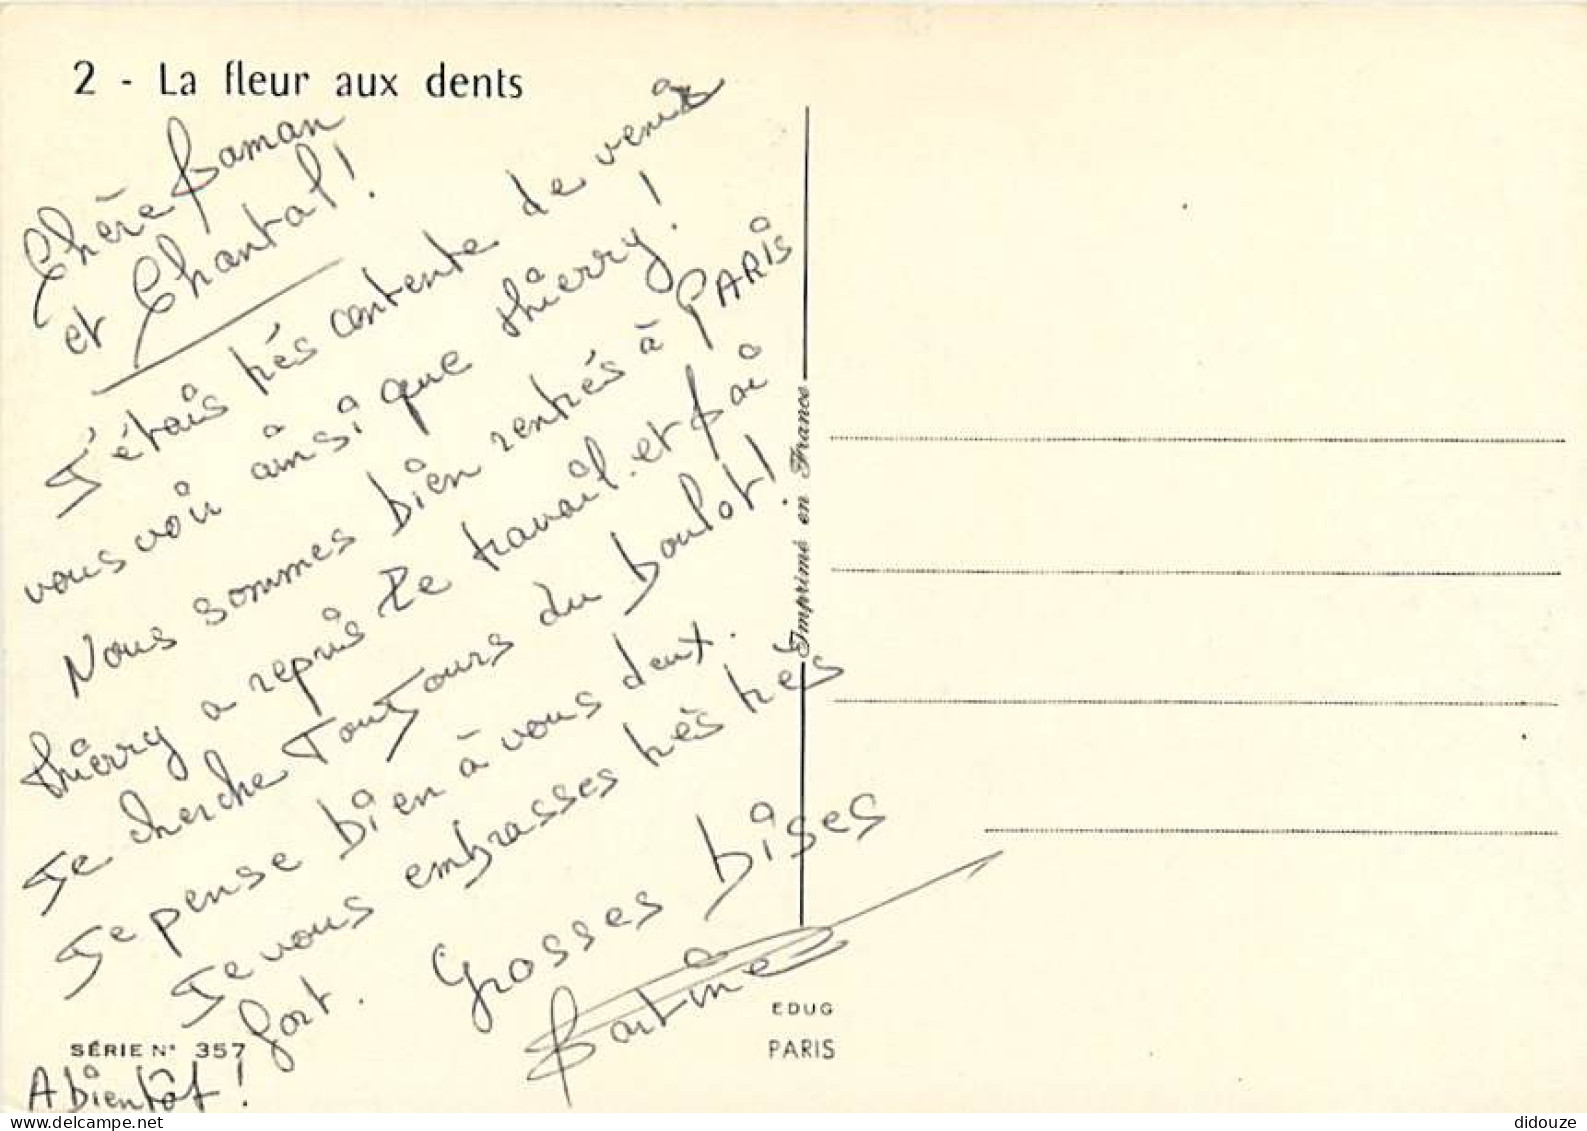 2 - La fleur aux dents
Chère Maman
et Chantal!
J'étais très contente de venir
vous voir ainsi que thierry!
Nous sommes bien rentrés à PARIS
thierry a repris le travail. et Moi
Je cherche Toujours du boulot!
Je pense bien à vous deux.
Je vous embrasses très très
fort. Grosses bises
Martine
A bientôt!
SÉRIE N° 357
Imprimé en France
EDUG
PARIS
delcampe.net
didouze